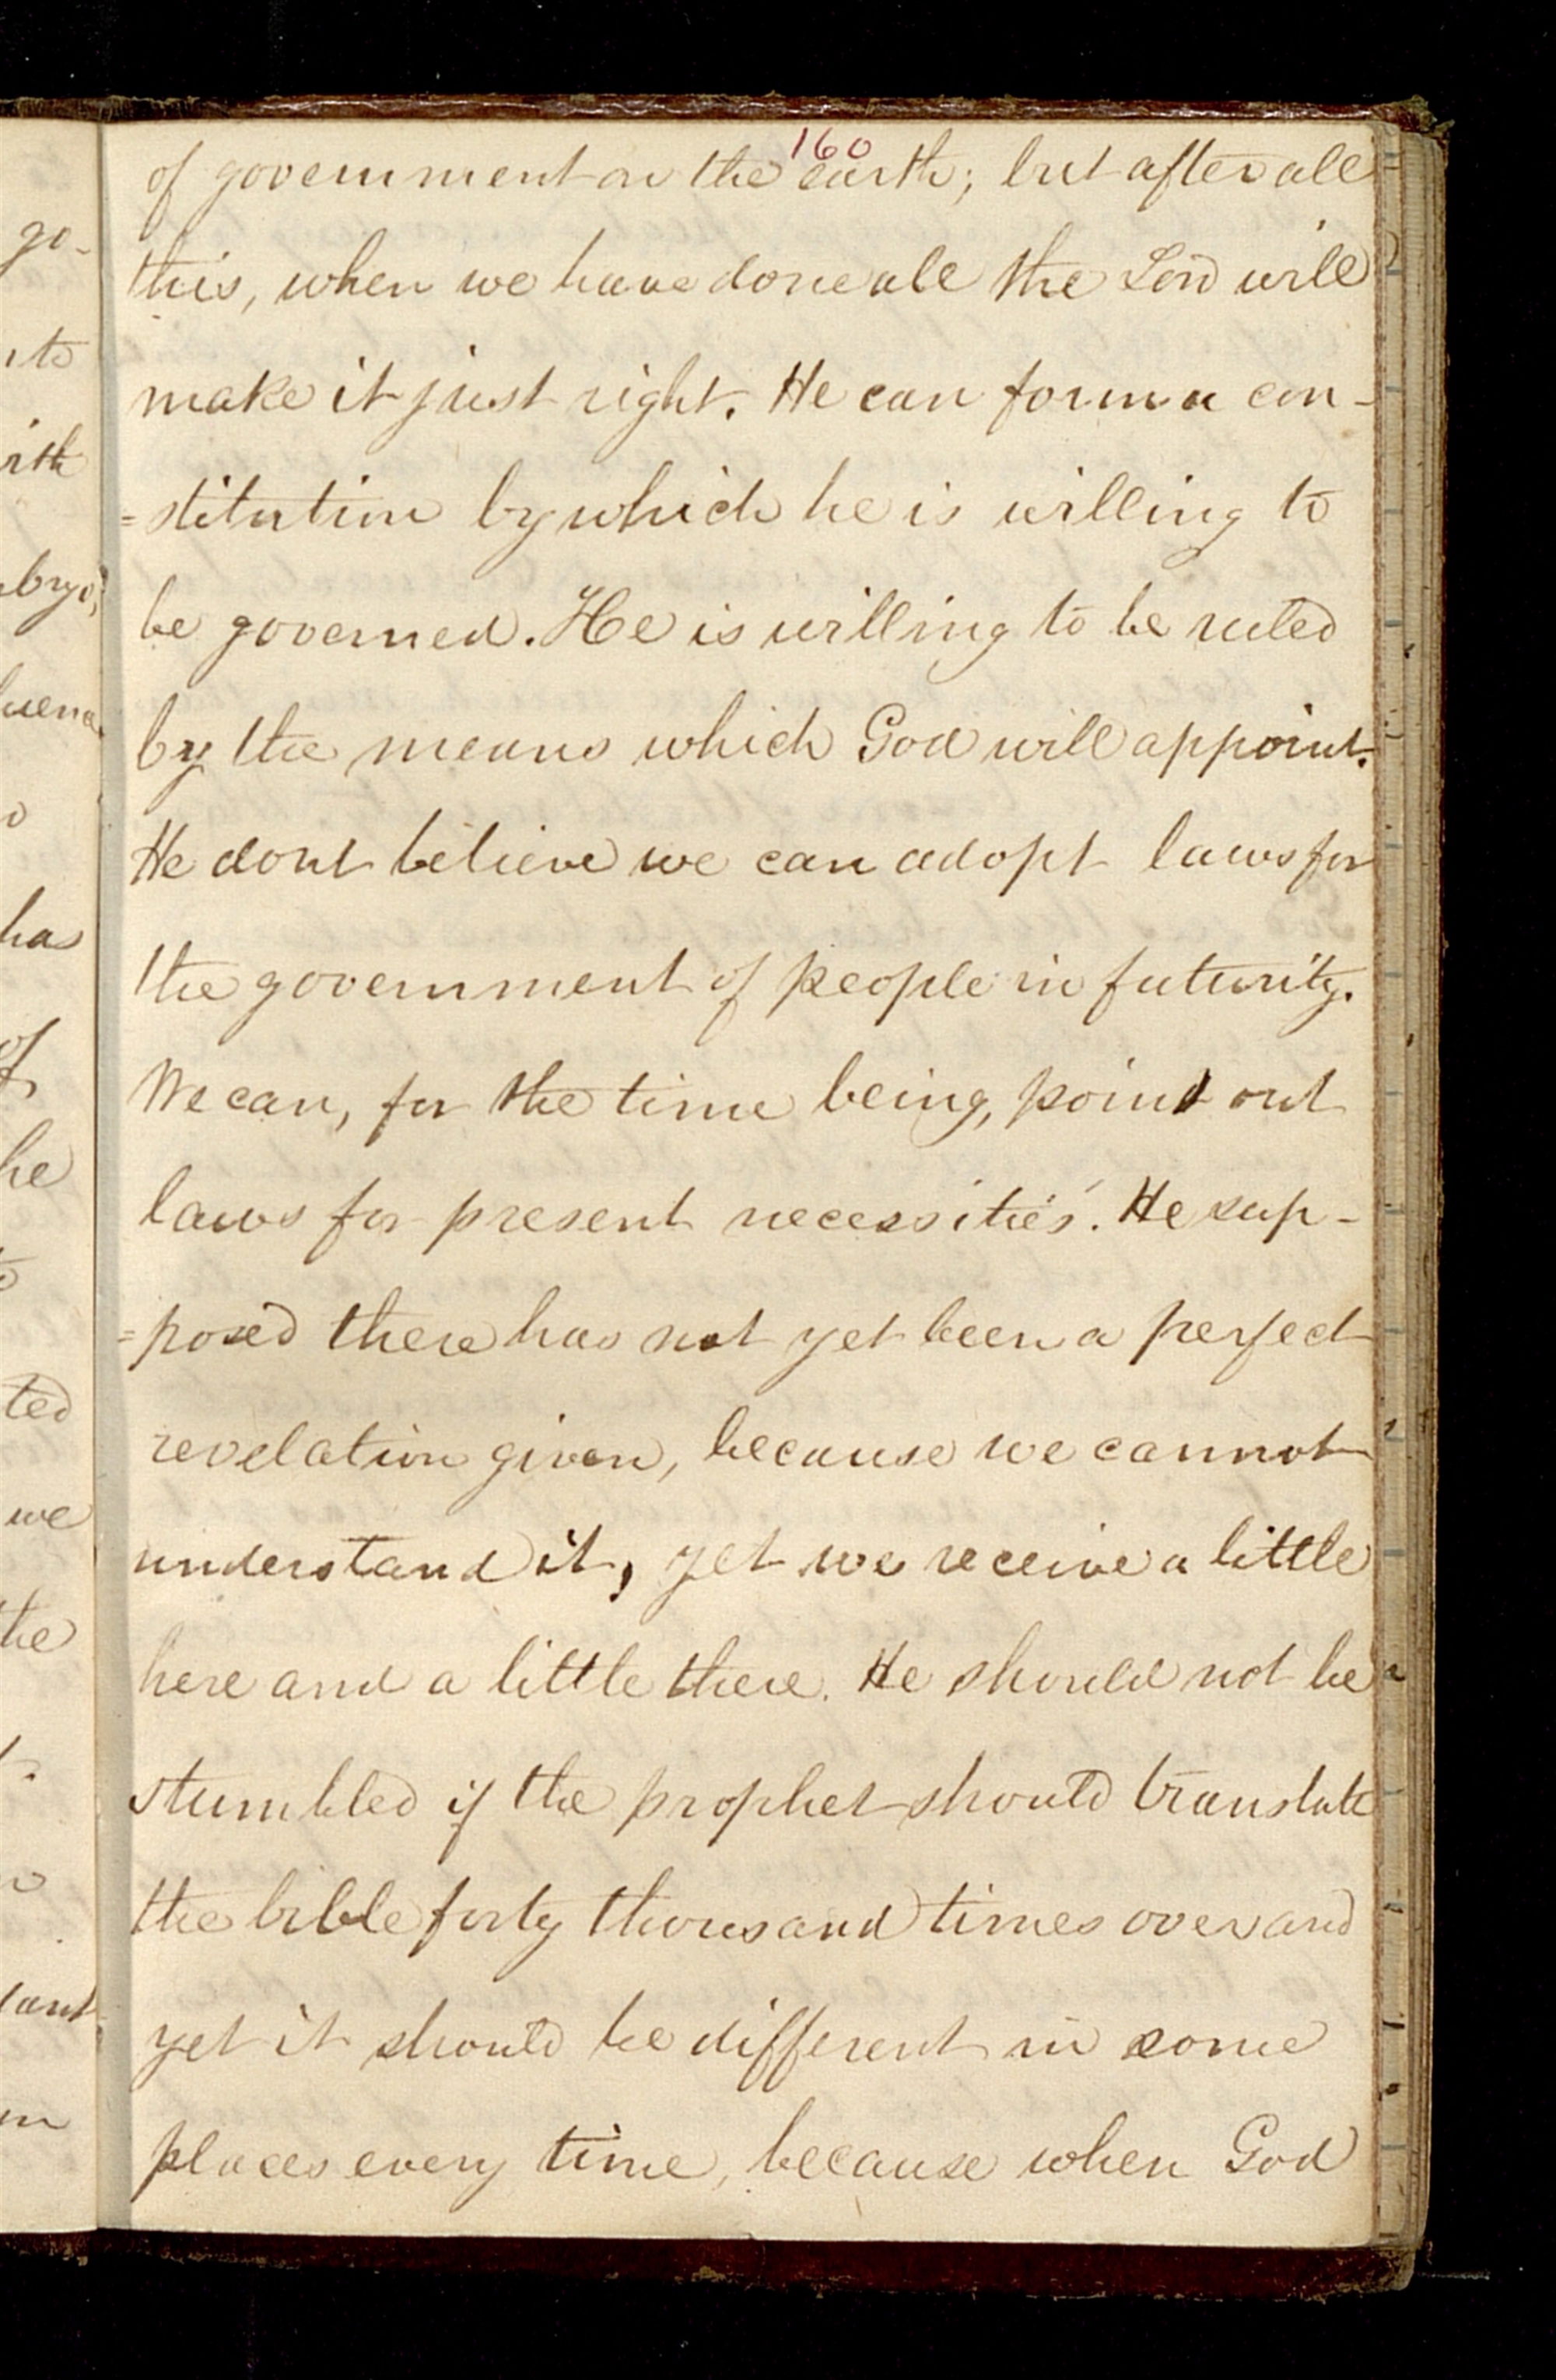 160
of government on the earth; but after all
this, when we have done all the Lord will
make it just right. He can form a con-
=stitution by which he is willing to
be governed. He is willing to be ruled
by the means which God will appoint.
He dont believe we can adopt laws for
the government of people in futurity.
We can, for the time being, point out
laws for present necessities. He sup-
=posed there has not yet been a perfect
revelation given, because we cannot
understand it, yet we receive a little
here and a little there. He should not be
stumbled if the prophet should translate
the bible forty thousand times over and
yet it should be different in some
places every time, because when God
go-
to
has
of
he
ted
we
the